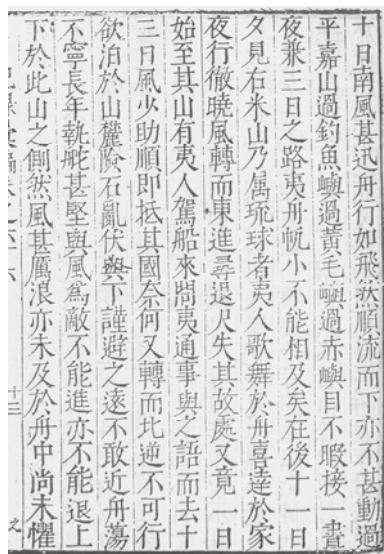 十日南風甚迅舟行如飛然順流而下亦不甚動過
平嘉山過釣魚嶼過黃毛嶼過赤嶼目不暇接一晝
夜兼三日之路夷舟帆小不能相及矣在後十一日
夕見右米山乃属琉球者夷人歌舞於舟喜達於家
夜行徹曉風轉而東進尋退尺失其故處又竟一日
始至其山有夷人駕船來問夷通事與之語而去十
三日風少助順即抵其國奈何又轉而北逆不可行
欲泊於山麓險石亂伏與下謹避之遠不敢近舟蕩
不寧長年執舵甚堅與風為敵不能進亦不能退上
下於此山之側然風甚厲浪亦未及於舟中尚未懼
十二